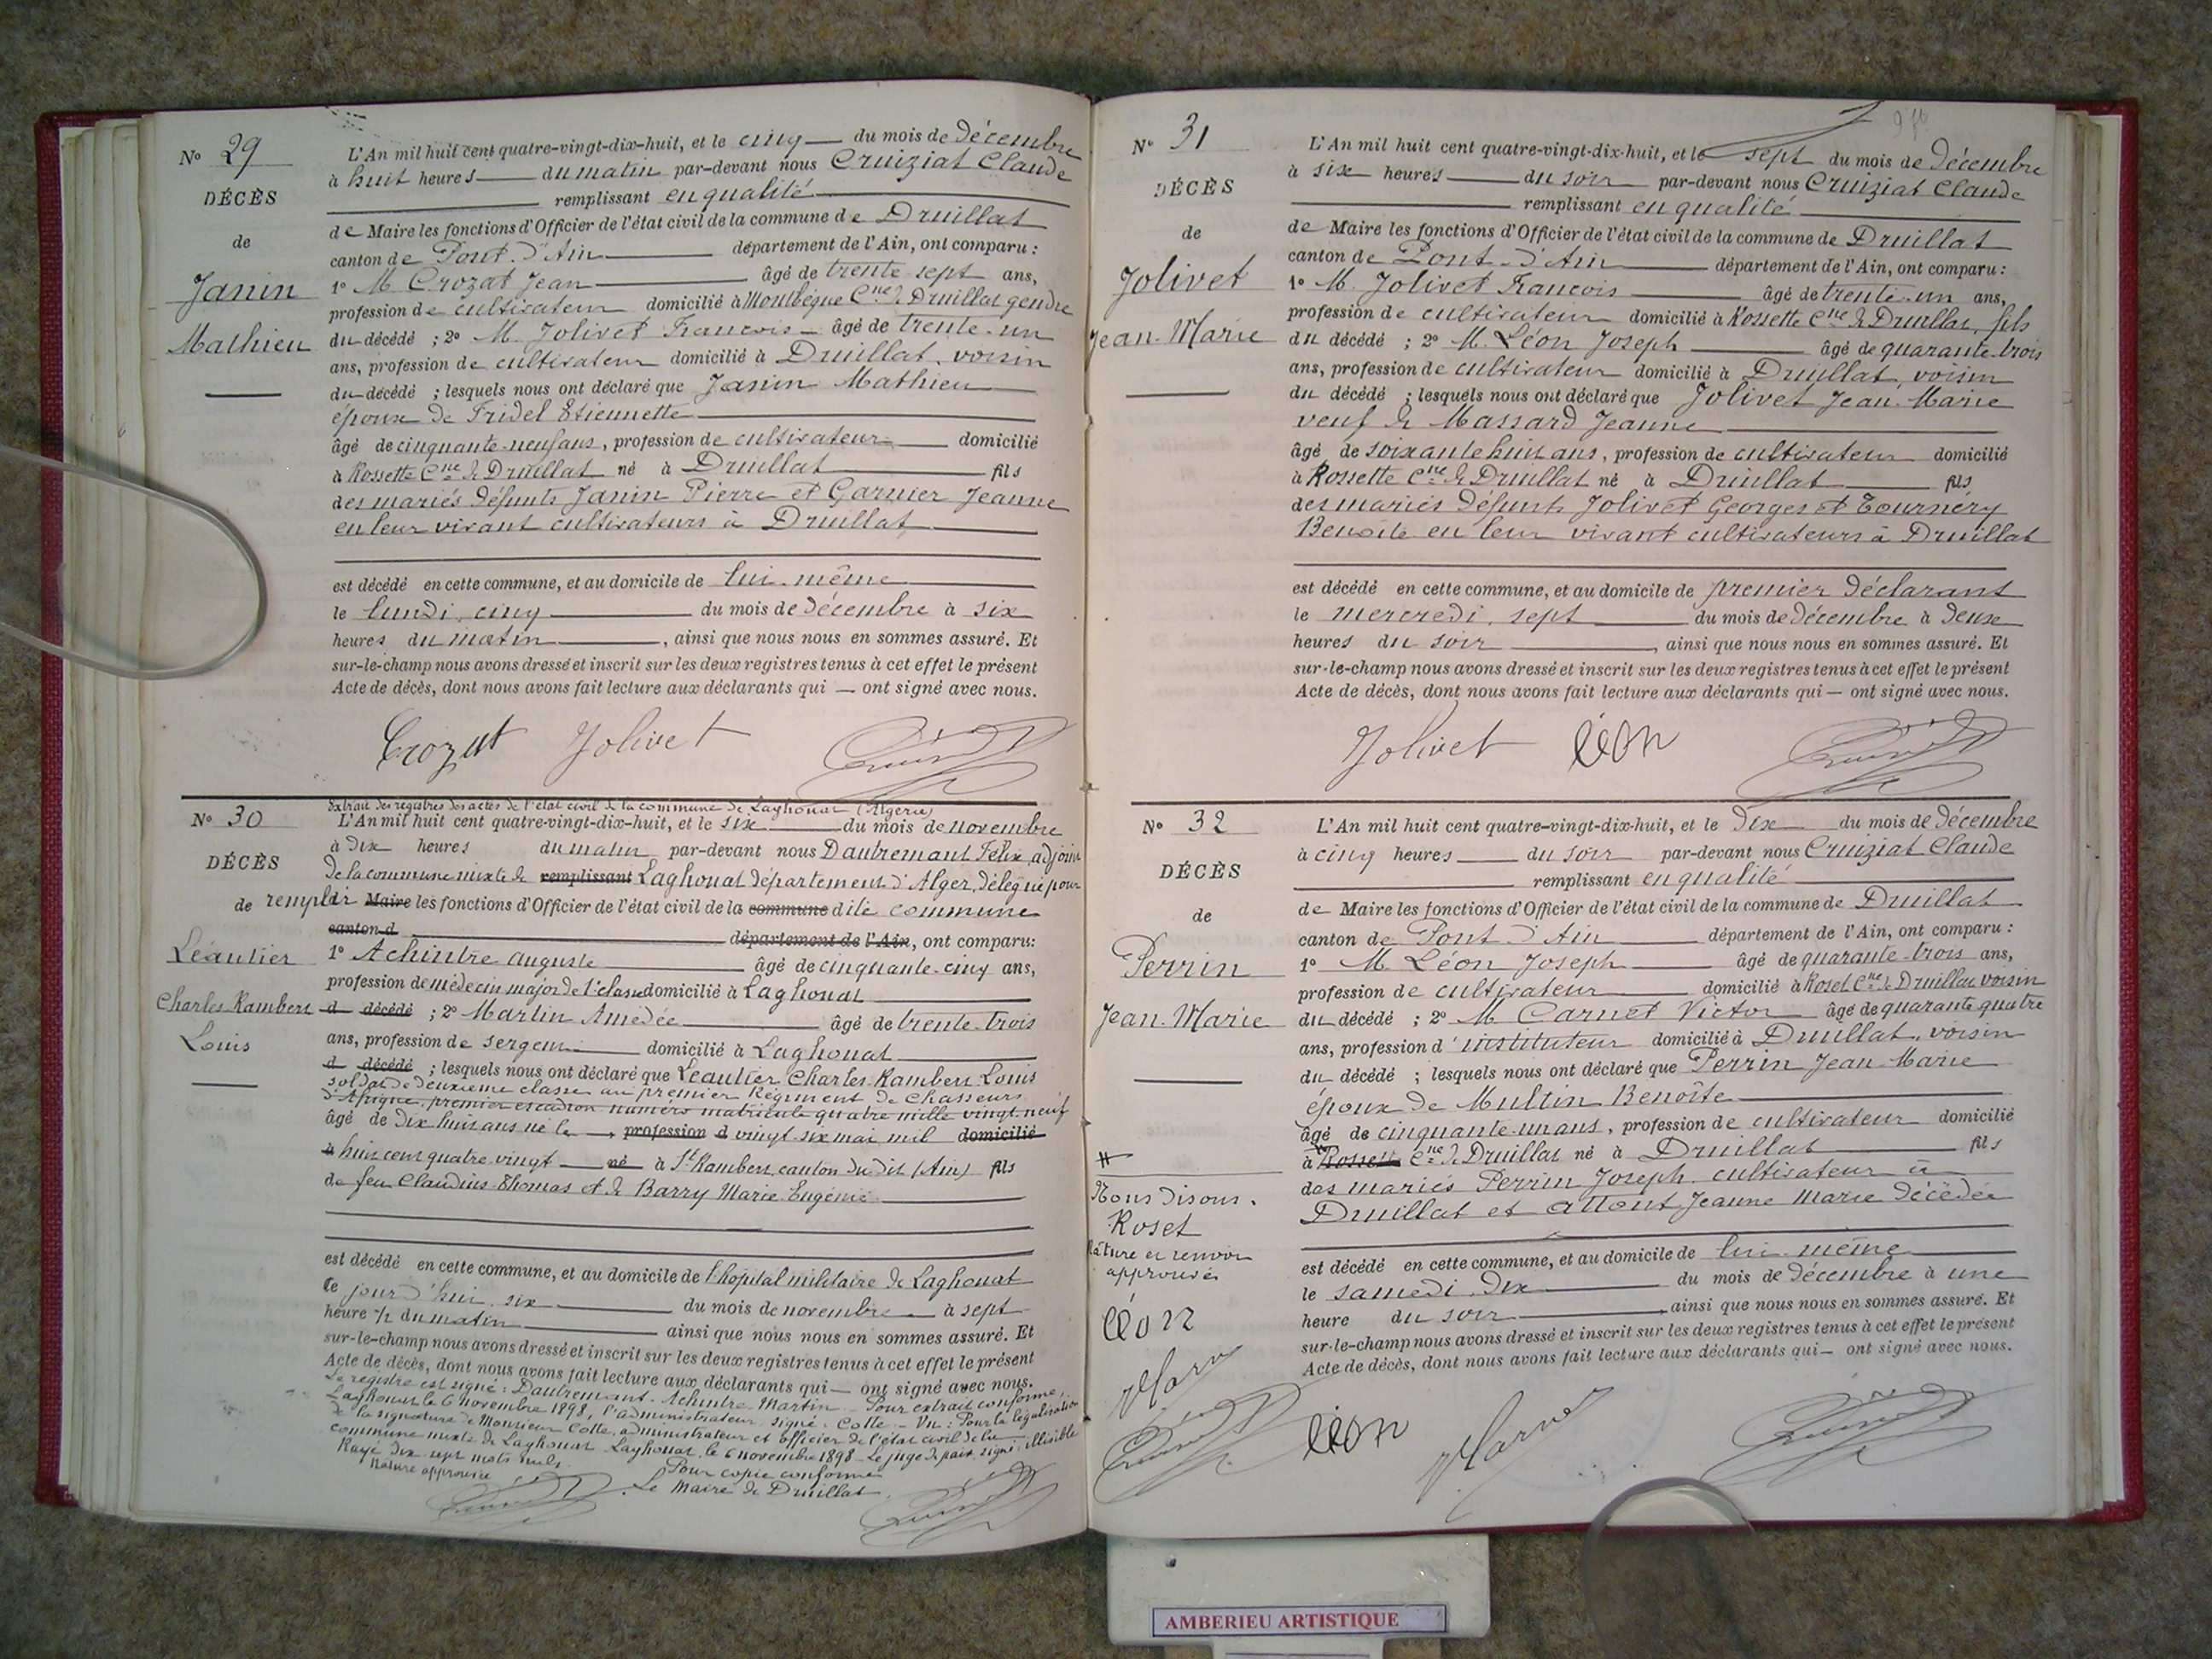 Nº 29
DÉCÈS
de
Janin
Mathieu
L'An mil huit cent quatre-vingt-dix-huit, et le cinq du mois de Décembre
à huit heures du matin par-devant nous Cruiziat Claude
remplissant en qualité
de Maire les fonctions d'Officier de l'état civil de la commune de Druillat
canton de Pont-d'Ain département de l'Ain, ont comparu :
1º M Crozat Jean âgé de trente-sept ans,
profession de cultivateur domicilié à Monthègue Cne de Druillat gendre
du décédé ; 2º M. Jolivet François âgé de trente-un
ans, profession de cultivateur domicilié à Druillat, voisin
du décédé ; lesquels nous ont déclaré que Janin Mathieu
époux de Fridel Etiennette
âgé de cinquante-neuf ans, profession de cultivateur domicilié
à Rossette Cne de Druillat né à Druillat fils
des mariés défunts Janin Pierre et Garnier Jeanne
en leur vivant cultivateurs à Druillat
est décédé en cette commune, et au domicile de lui-même
le lundi, cinq du mois de Décembre à six
heures du matin, ainsi que nous nous en sommes assuré. Et
sur-le-champ nous avons dressé et inscrit sur les deux registres tenus à cet effet le présent
Acte de décès, dont nous avons fait lecture aux déclarants qui — ont signé avec nous.
Crozat Jolivet
Nº 30
DÉCÈS
de
Léautier
Charles Rambert
Louis
Extrait des registres des actes de l'état civil de la commune de Laghouat (Algérie)
L'An mil huit cent quatre-vingt-dix-huit, et le six du mois de novembre
à dix heures du matin par-devant nous Dautremant Félix, adjoint
de la commune mixte de remplissant Laghouat département d'Alger, délégué pour
remplir Maire les fonctions d'Officier de l'état civil de la commune dite commune
canton d département de l'Ain, ont comparu:
1º Achintre Auguste âgé de cinquante-cinq ans,
profession de médecin major de 1e classe domicilié à Laghouat
d décédé ; 2º Martin Amédée âgé de trente-trois
ans, profession de sergent domicilié à Laghouat
d décédé ; lesquels nous ont déclaré que Léautier Charles Rambert Louis
soldat de deuxième classe au premier Régiment de Chasseurs
d'Afrique, premier escadron numéro matricule quatre mille vingt-neuf
âgé de dix huit ans né le profession d vingt-six mai mil domicilié
à huit cent quatre-vingt né à St Rambert, canton du dit (Ain) fils
de feu Claudius Thomas et de Barry Marie Eugénie
est décédé en cette commune, et au domicile de l'hopital militaire de Laghouat
ce jour d'hui, six du mois de novembre à sept
heure ½ du matin ainsi que nous nous en sommes assuré. Et
sur-le-champ nous avons dressé et inscrit sur les deux registres tenus à cet effet le présent
Acte de décès, dont nous avons fait lecture aux déclarants qui — ont signé avec nous.
Le registre est signé : Dautremant - Achintre - Martin - Pour extrait conforme,
Laghouat le 6 novembre 1898, l'administrateur signé : Cotte - Vu : Pour la légalisation
de la signature de Monsieur Cotte, administrateur et officier de l'état civil de la
commune mixte de Laghouat. Laghouat, le 6 novembre 1898 - Le juge de paix, signé : illisible
Rayé dix-sept mots nuls
Rature approuvée
Pour copie conforme
Le Maire de Druillat
Nº 31
DÉCÈS
de
Jolivet
Jean-Marie
L'An mil huit cent quatre-vingt-dix-huit, et le sept du mois de Décembre
à six heures du soir par-devant nous Cruiziat Claude
remplissant en qualité
de Maire les fonctions d'Officier de l'état civil de la commune de Druillat
canton de Pont-d'Ain département de l'Ain, ont comparu :
1º M. Jolivet François âgé de trente-un ans,
profession de cultivateur domicilié à Rossette Cne de Druillat, fils
du décédé ; 2º M. Léon Joseph âgé de quarante-trois
ans, profession de cultivateur domicilié à Druillat, voisin
du décédé ; lesquels nous ont déclaré que Jolivet Jean-Marie
veuf de Massard Jeanne
âgé de soixante huit ans, profession de cultivateur domicilié
à Rossette Cne de Druillat né à Druillat fils
des mariés défunts Jolivet Georges et Tournéry
Benoîte en leur vivant cultivateurs à Druillat
est décédé en cette commune, et au domicile de premier déclarant
le mercredi, sept du mois de Décembre à deux
heures du soir, ainsi que nous nous en sommes assuré. Et
sur-le-champ nous avons dressé et inscrit sur les deux registres tenus à cet effet le présent
Acte de décès, dont nous avons fait lecture aux déclarants qui — ont signé avec nous.
Jolivet Léon
Nº 32
DÉCÈS
de
Perrin
Jean-Marie
L'An mil huit cent quatre-vingt-dix-huit, et le dix du mois de Décembre
à cinq heures du soir par-devant nous Cruiziat Claude
remplissant en qualité
de Maire les fonctions d'Officier de l'état civil de la commune de Druillat
canton de Pont-d'Ain département de l'Ain, ont comparu :
1º M. Léon Joseph âgé de quarante-trois ans,
profession de cultivateur domicilié à Roset Cne de Druillat voisin
du décédé ; 2º M Carnet Victor âgé de quarante quatre
ans, profession d'instituteur domicilié à Druillat, voisin
du décédé ; lesquels nous ont déclaré que Perrin Jean-Marie
époux de Multin Benoîte
âgé de cinquante-un ans, profession de cultivateur domicilié
à Rossette Cne de Druillat né à Druillat fils
des mariés Perrin Joseph cultivateur à
Druillat et Attout Jeanne Marie décédée
est décédé en cette commune, et au domicile de lui-même
le samedi, dix du mois de Décembre à une
heure du soir, ainsi que nous nous en sommes assuré. Et
sur-le-champ nous avons dressé et inscrit sur les deux registres tenus à cet effet le présent
Acte de décès, dont nous avons fait lecture aux déclarants qui — ont signé avec nous.
Nous disons.
Roset
rature et renvoi
approuvés
Léon
Léon
AMBERIEU ARTISTIQUE